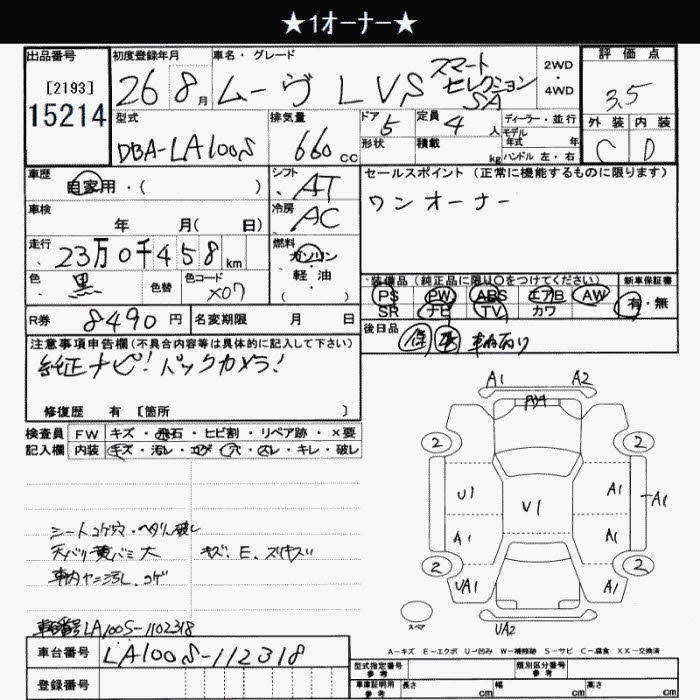 ★1オーナー★
出品番号 初度登録年月 車名・グレード 評価点
[2193]
15214
26 8月 ムーヴ L VS スマート セレクション SA 2WD・4WD 3.5
型式 排気量 ドア 定員 ディーラー・並行 外装 内装
DBA-LA100S 660cc 5 4人 モデル年式 年 C D
形状 積載 kg ハンドル 左・右
車歴 シフト セールスポイント (正常に機能するものに限ります)
自家用・( ) AT ワンオーナー
車検 冷房
年 月( 日) AC
走行 燃料
23万0千458km ガソリン
色 色替 色コード 軽・油 装備品 (純正品に限り〇をつけてください) 新車保証書
黒 X07 ( ) PS PW ABS エアB AW 有・無
SR ナビ TV カワ
R券 8490円 名変期限 月 日 後日品
注意事項申告欄 (不具合内容等は具体的に記入して下さい)
純正ナビ! バックカメラ!
修復歴 有 〔箇所 〕
A1 A2
検査員 FW キズ・飛石・ヒビ割・リペア跡・×要
記入欄 内装 キズ・汚レ・コゲ・穴・スレ・キレ・破レ
2 2
U1 V1 A1 A1
A1 A1
2 2
UA1 A1
シートコゲ穴・ヘタリ破レ
天バリ黄バミ大 キズ、E、スリキズ
車内ヤニ汚レ、コゲ
スペア UA2
車台番号LA100S-1102318
A-キズ E-エクボ U-凹み W-補修跡 S-サビ C-腐食 XX-交換済
車台番号 LA100S-112318
登録番号
型式指定番号 参考 類別区分番号 参考
車庫証明用 参考 長さ cm 幅 cm 高さ cm